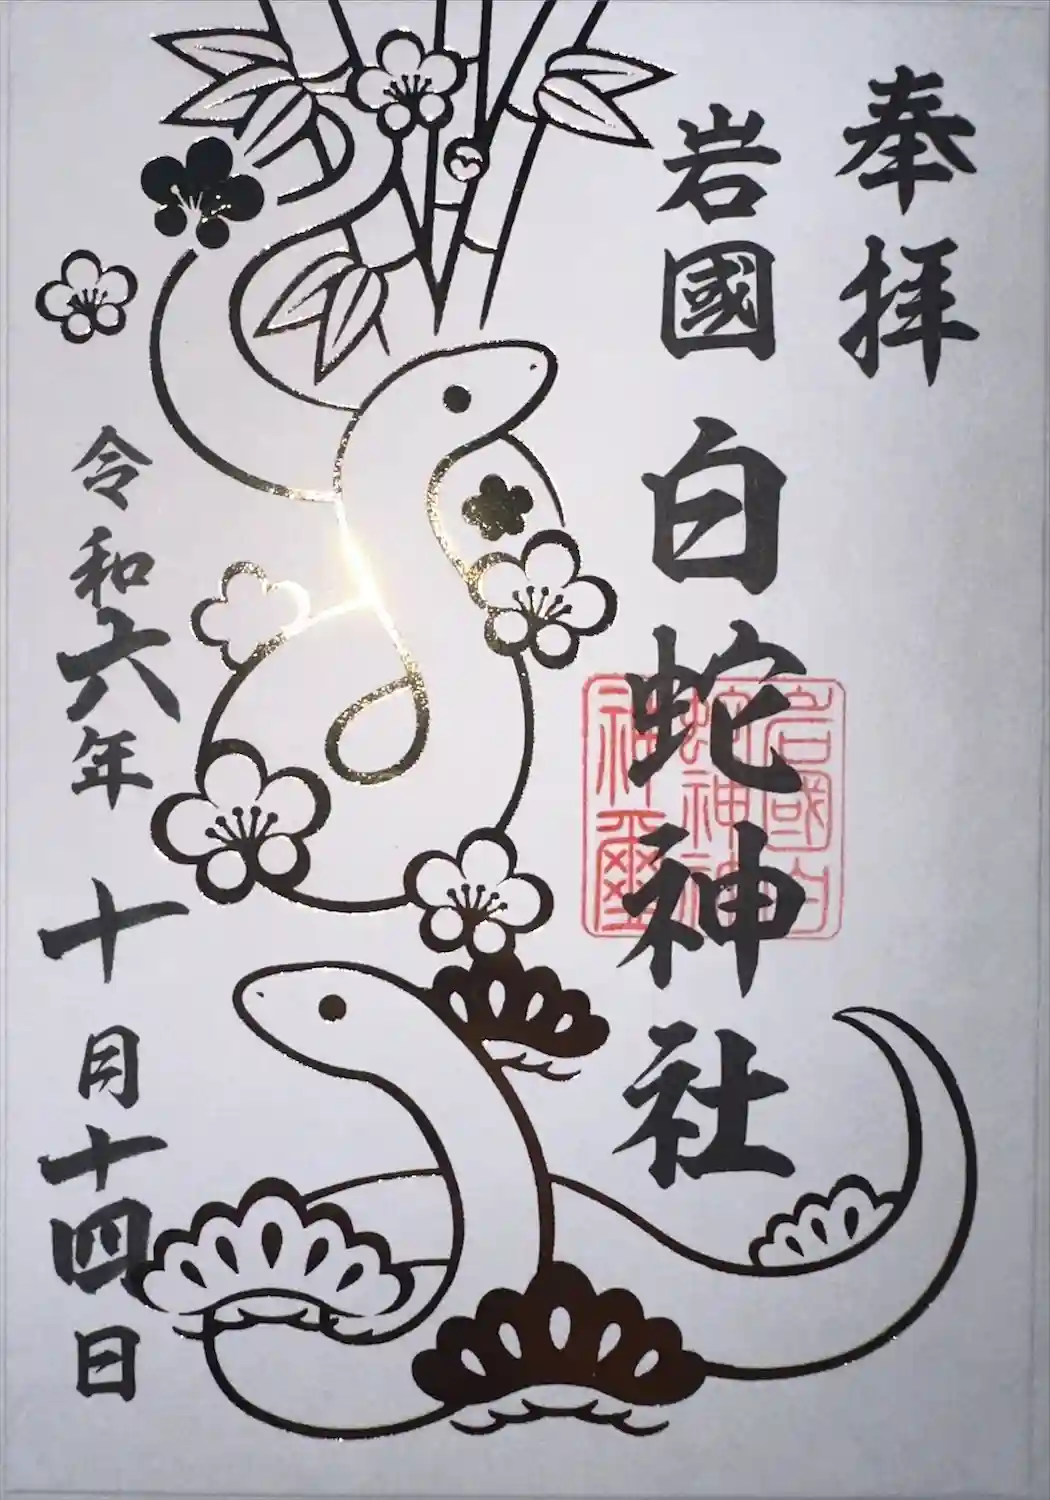 奉拝
岩國白蛇神社
岩國白
蛇神社
神璽
令和六年十月十四日